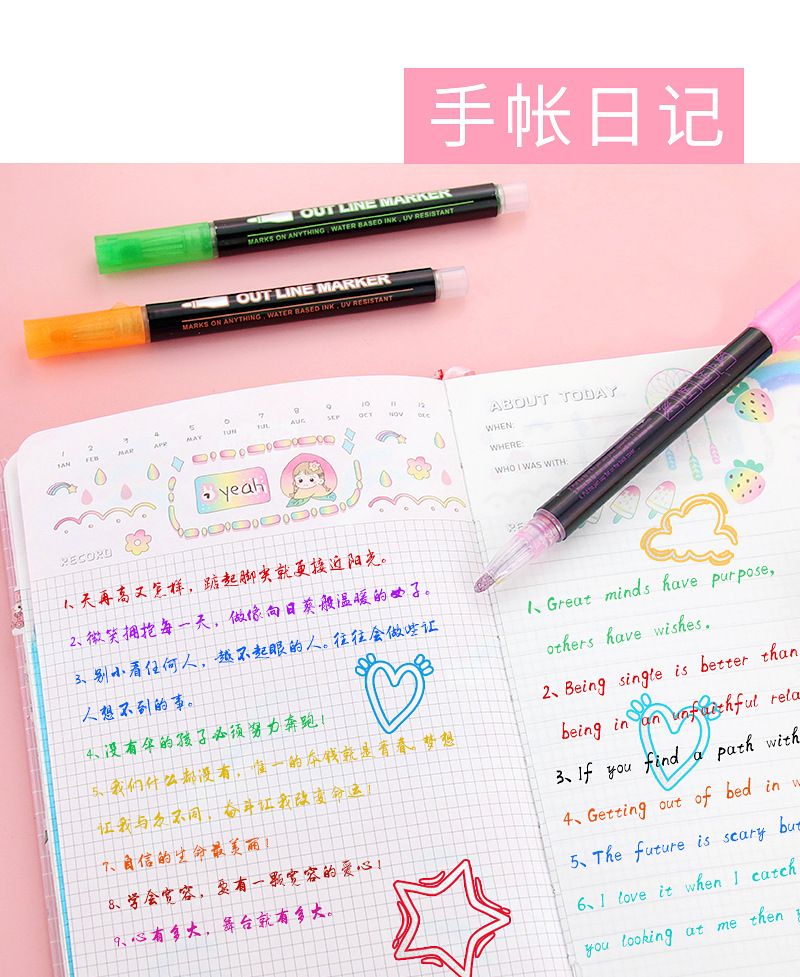 手帐日记
OUT LINE MARKER
MARKS ON ANYTHING , WATER BASED INK , UV RESISTANT
OUT LINE MARKER
MARKS ON ANYTHING , WATER BASED INK , UV RESISTANT
1 2 3 4 5 6 7 8 9 10 11 12
JAN FEB MAR APR MAY JUN JUL AUG SEP OCT NOV DEC
yeah
RECORD
1、天再高又怎样，踮起脚尖就更接近阳光。
2、微笑拥抱每一天，做像向日葵般温暖的女子。
3、别小看任何人，越不起眼的人。往往会做些让
人想不到的事。
4、没有伞的孩子必须努力奔跑！
5、我们什么都没有，唯一的本钱就是青春。梦想
让我与众不同，奋斗让我改变命运！
7、自信的生命最美丽！
8、学会宽容，要有一颗宽容的爱心！
9、心有多大，舞台就有多大。
ABOUT TODAY
WHEN:
WHERE:
WHO I WAS WITH:
1、Great minds have purpose,
others have wishes.
2、Being single is better than
being in an unfaithful rela
3、If you find a path with
4、Getting out of bed in
5、The future is scary but
6、I love it when I catch
you looking at me then